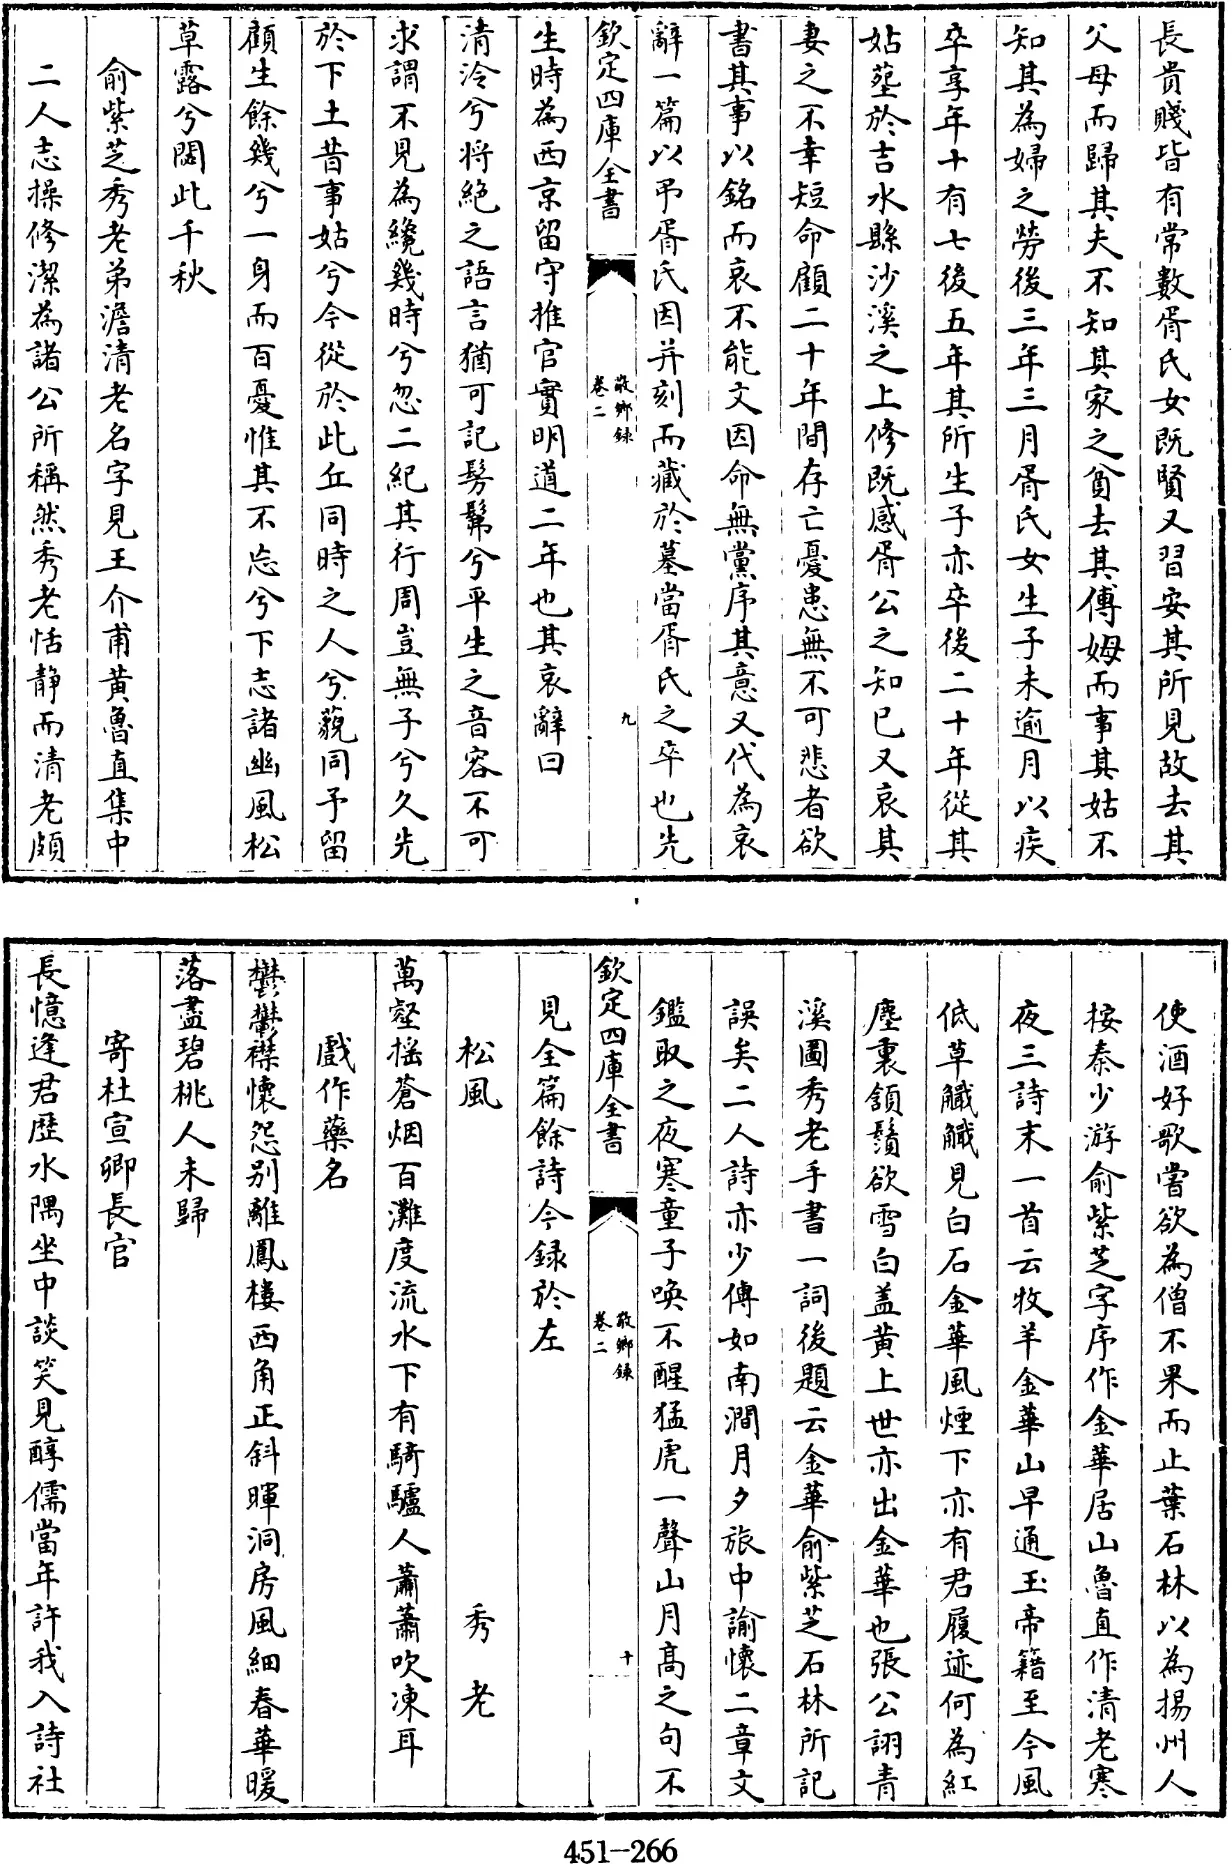 長貴賤皆有常數胥氏女既賢又習安其所見故去其
父母而歸其夫不知其家之貧去其傅姆而事其姑不
知其為婦之勞後三年三月胥氏女生子未逾月以疾
卒享年十有七後五年其所生子亦卒後二十年從其
姑塟於吉水縣沙溪之上修既感胥公之知已又哀其
妻之不幸短命顧二十年間存亡憂患無不可悲者欲
書其事以銘而哀不能文因命無黨序其意又代為哀
辭一篇以弔胥氏因并刻而藏於墓當胥氏之卒也先
欽定四庫全書
敬鄉録
卷二
九
生時為西京留守推官實明道二年也其哀辭曰
清泠兮將絶之語言猶可記髣髴兮平生之音容不可
求謂不見為纔幾時兮忽二紀其行周豈無子兮久先
於下土昔事姑兮今從於此丘同時之人兮藐同予留
顧生餘幾兮一身而百憂惟其不忘兮下志諸幽風松
草露兮閟此千秋
俞紫芝秀老弟澹清老名字見王介甫黄魯直集中
二人志操修潔為諸公所稱然秀老恬靜而清老頗
使酒好歌嘗欲為僧不果而止葉石林以為揚州人
按秦少游俞紫芝字序作金華居山魯直作清老寒
夜三詩末一首云牧羊金華山早通玉帝籍至今風
低草觹觹見白石金華風煙下亦有君履迹何為紅
塵裏頷鬚欲雪白盖黄上世亦出金華也張公詡青
溪圖秀老手書一詞後題云金華俞紫芝石林所記
誤矣二人詩亦少傳如南澗月夕旅中諭懷二章文
鑑取之夜寒童子喚不醒猛虎一聲山月髙之句不
欽定四庫全書
敬鄉録
卷二
十
見全篇餘詩今録於左
松風 秀老
萬壑揺蒼烟百灘度流水下有騎驢人蕭蕭吹凍耳
戲作藥名
鬱鬱襟懷怨别離鳳樓西角正斜暉洞房風細春華暖
落盡碧桃人未歸
寄杜宣卿長官
長憶逢君歴水隅坐中談笑見醇儒當年許我入詩社
451-266